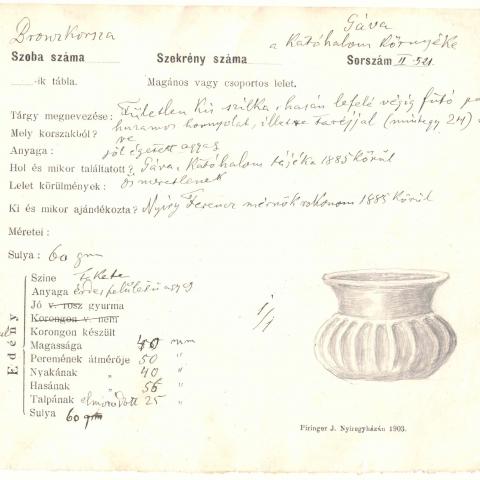 Bronzkorsza
Gáva
a Katóhalom környéke
Szoba száma
Szekrény száma
Sorszám II-521.
-ik tábla.
Magános vagy csoportos lelet.
Tárgy megnevezése: Fületlen kis szilke, hasán lefelé végig futó
Mely korszakból? huzamos hornyolat, illetve taréjjal (mintegy 24)
Anyaga: jól égetett agyag
Hol és mikor találtatott? Gáva, Katóhalom tájéka 1885 körül
Lelet körülmények: ismeretlenek
Ki és mikor ajándékozta? Nyíry Ferencz mérnök rokonom 1885 körül
Méretei:
Sulya: 60 grm
Edény
Szine fekete
Anyaga agyag
Jó v. rosz gyurma
Korongon v. nem
Korongon készült
Magassága 40 mm
Peremének átmérője 50 "
Nyakának " 40 "
Hasának " 56 "
Talpának elmosódott 25 "
Sulya 60 grm
1/1
Piringer J. Nyiregyházán 1903.